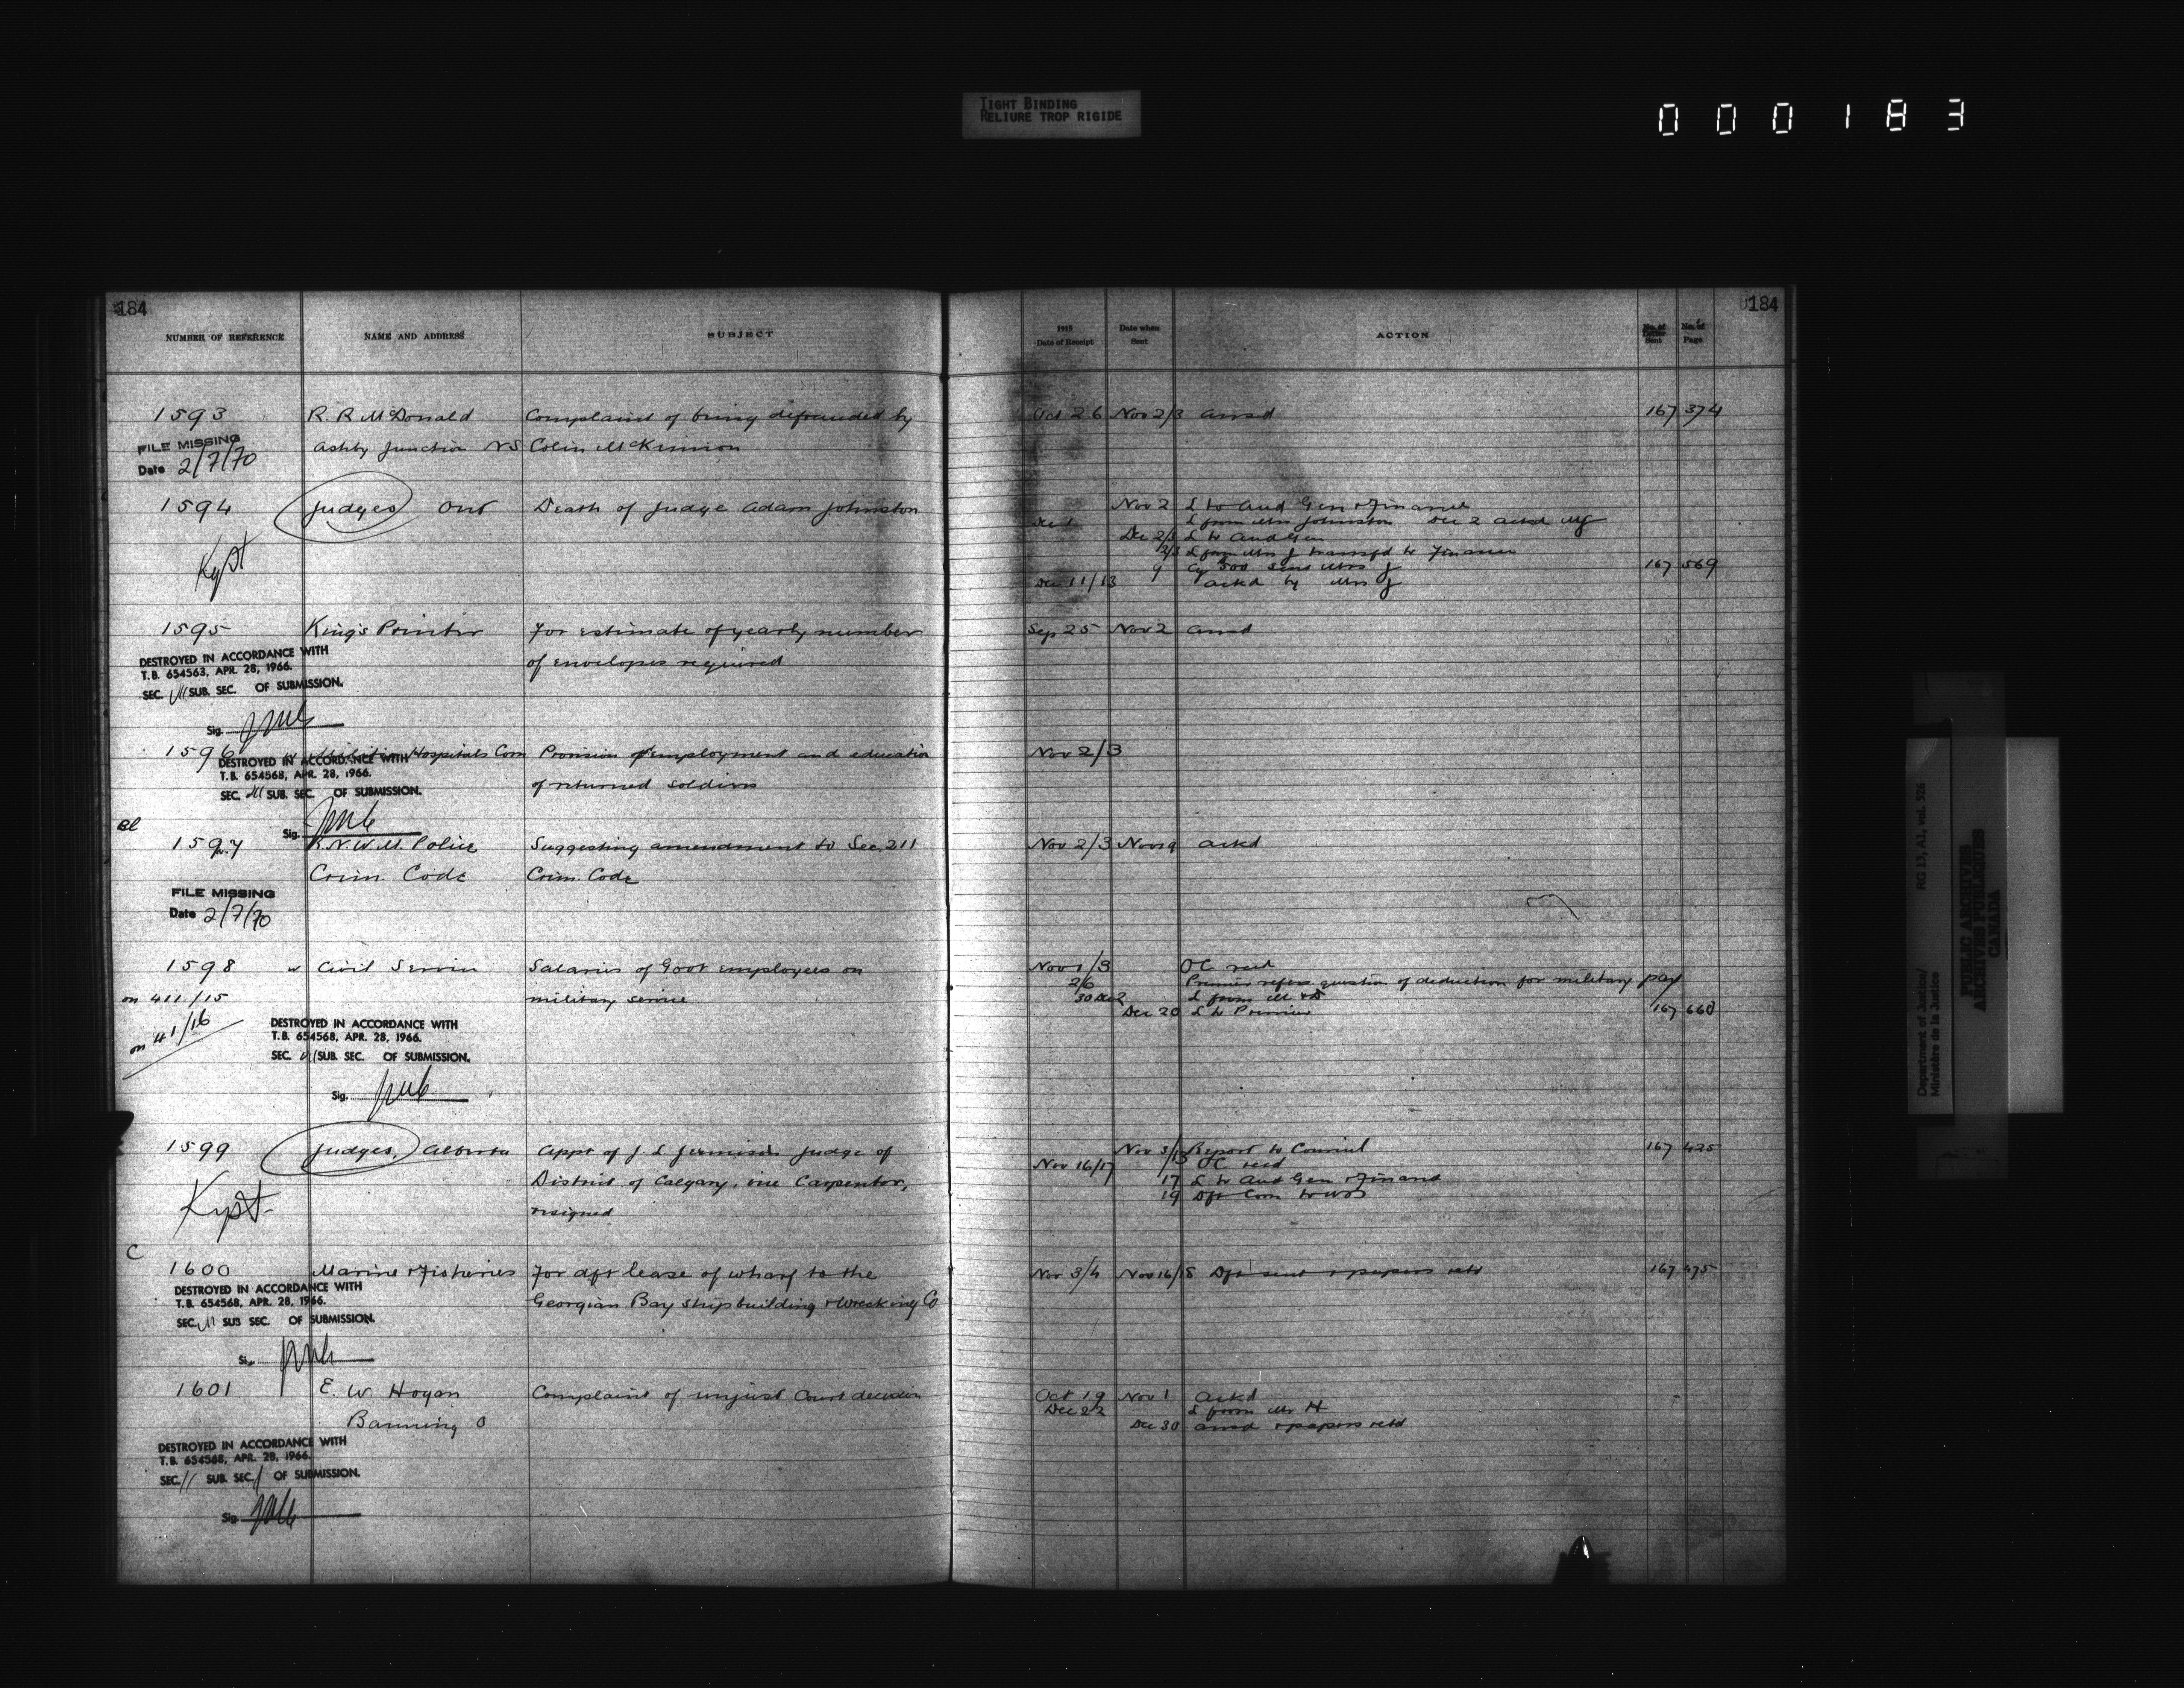 TIGHT BINDING
RELIURE TROP RIGIDE
000183
184
184
NUMBER OF REFERENCE NAME AND ADDRESS SUBJECT 1915 Date of Receipt Date when Sent ACTION No. of Letter Sent No. of Page
1593 R. R McDonald Complaint of being defrauded by Oct 26 Nov 2/3 ansd 167 374
FILE MISSING Ashby Junction NS Colin McKinnon
Date 2/7/70
1594 Judges Ont Death of Judge Adam Johnston Nov 2 L to Aud Gen & Finance
Dec 1 L from Mrs Johnston Dec 2 ackd
Dec 2/3 L to Aud Gen
Kept 2/3 L from Mrs J transfd to Finance
9 500 sent Mrs J 167 569
Dec 11/13 ackd by Mrs J
1595 King's Printer For estimate of yearly number Sep 25 Nov 2 ansd
of envelopes required
DESTROYED IN ACCORDANCE WITH
T.B. 654563, APR. 28, 1966.
SEC. SUB. SEC. OF SUBMISSION.
Sig.
1596 Hospitals Com Provision of employment and education Nov 2/3
of returned soldiers
DESTROYED IN ACCORDANCE WITH
T.B. 654568, APR. 28, 1966.
SEC. SUB. SEC. OF SUBMISSION.
Sig.
1597 R.N.W.M. Police Suggesting amendment to Sec. 211 Nov 2/3 ackd
Crim. Code Crim. Code
FILE MISSING
Date 2/7/70
1598 w Civil Service Salaries of Govt employees on Nov 1/3 OC recd
on 411/15 military service 2/6 Premier refers question of deduction for military pay
30 Dec 2 L from
on 41/16 Dec 20 L to Premier 167 660
DESTROYED IN ACCORDANCE WITH
T.B. 654568, APR. 28, 1966.
SEC. SUB. SEC. OF SUBMISSION.
Sig.
1599 Judges, Alberta Appt of J L Jennison Judge of Nov 3/ Report to Council 167 425
Nov 16/17 OC recd
Kept District of Calgary, vice Carpenter, 17 L to Aud Gen & Finance
resigned 19 Dft Com to
C
1600 Marine & Fisheries For dft lease of wharf to the Nov 3/4 Nov 16/18 Dft sent & papers retd 167 475
Georgian Bay shipbuilding & Wrecking Co
DESTROYED IN ACCORDANCE WITH
T.B. 654568, APR. 28, 1966.
SEC. SUB SEC. OF SUBMISSION.
Sig.
1601 E. W Hogan Complaint of unjust Court decision Oct 19 Nov 1 ackd
Dec 22 L from Mr H
Banning O Dec 30 ansd & papers retd
DESTROYED IN ACCORDANCE WITH
T.B. 654568, APR. 28, 1966.
SEC. SUB. SEC. OF SUBMISSION.
Sig.
Department of Justice/ RG 13, A1, vol. 926
Ministère de la Justice
PUBLIC ARCHIVES
ARCHIVES PUBLIQUES
CANADA